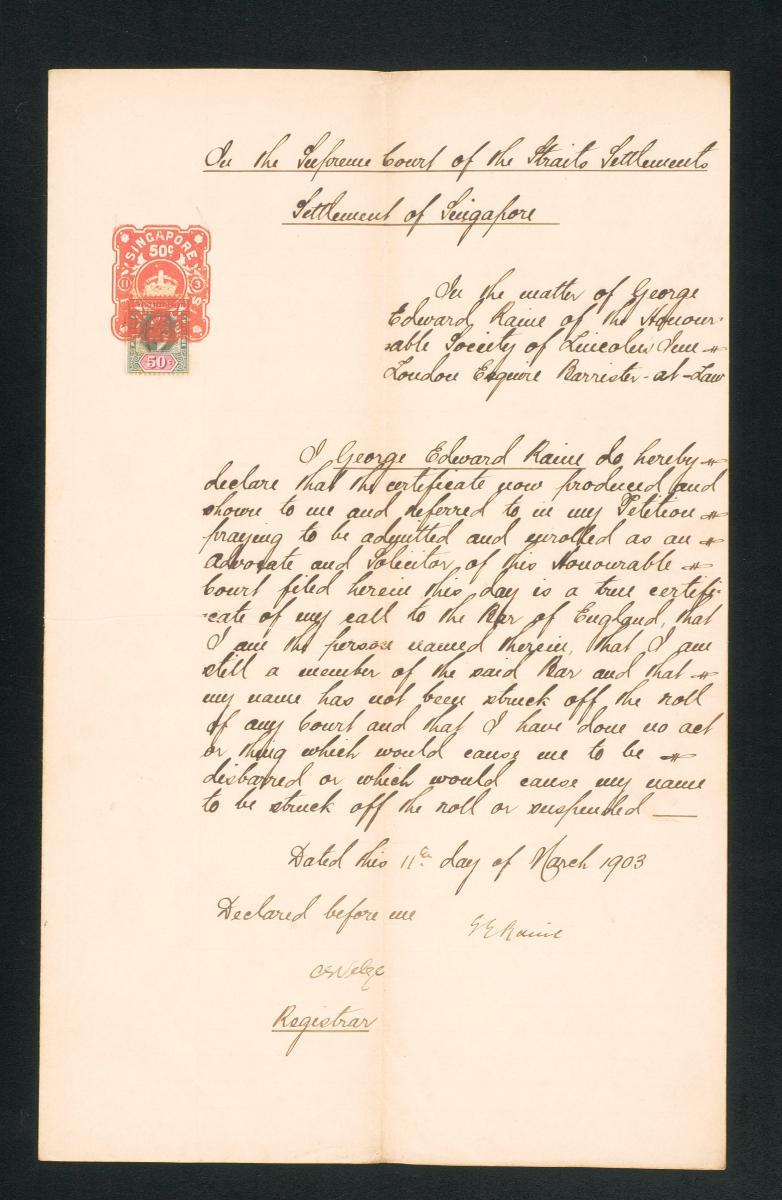 In the Supreme Court of the Straits Settlements
Settlement of Singapore
SINGAPORE
50c
11 3
50c
In the matter of George
Edward Raine of the Honour-
-able Society of Lincoln's Inn
London Esquire Barrister-at-Law
I George Edward Raine do hereby
declare that the certificate now produced and
shown to me and referred to in my Petition
praying to be admitted and enrolled as an
Advocate and Solicitor of this Honourable
Court filed herein this day is a true certifi-
-cate of my call to the Bar of England, that
I am the person named therein, that I am
still a member of the said Bar and that
my name has not been struck off the roll
of any Court and that I have done no act
or thing which would cause me to be
disbarred or which would cause my name
to be struck off the roll or suspended
Dated this 11th day of March 1903
Declared before me
G E Raine
Registrar